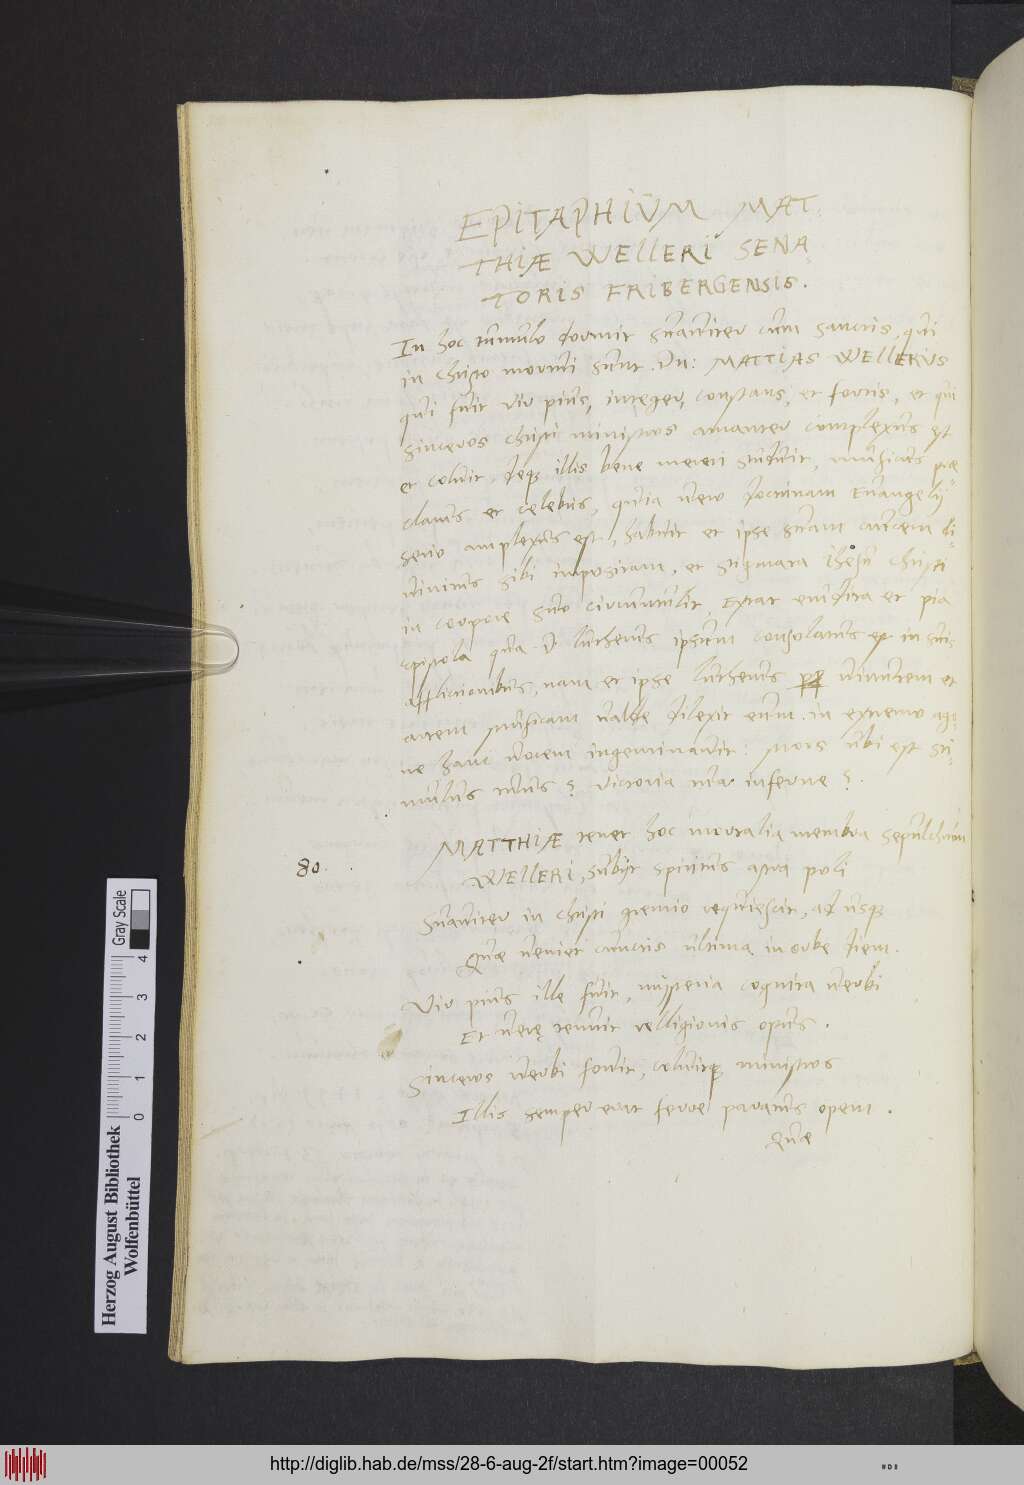 EPITAPHIUM MAT:
THIÆ WELLERI SENA-
TORIS FRIBERGENSIS.
In hoc tumulo dormit suauiter cum sanctis, qui
in Christo mortui sunt. Dn: MATTIAS WELLERUS
qui fuit vir pius, integer, constans, et fortis, et qui
sinceros Christi ministros amanter complexus est
et coluit, deq3 illis bene mereri studuit, musicus præ
clarus et celebris, quia vero doctrinam Euangelij
serio amplexus est, habuit et ipse suam crucem di-
uinitus sibi impositam, et stigmata Ihesu Christi
in corpore suo circumtulit, Extat erudita et pia
epistola qua D Lutherus ipsum consolatus est in suis
afflictionibus, nam et ipse Lutherus uirtutem et
artem musicam ualde dilexit eum. in extremo ago-
ne hanc vocem ingeminauit: Mors ubi est sti-
mulus tuus? victoria tua inferne?
MATTHIÆ tenet hoc mortalia membra sepulchrum
80.
WELLERI, subijt spiritus astra poli
Suauiter in Christi gremio requiescit, ad usq3
Quæ ueniet cunctis ultima in orbe diem.
Vir pius ille fuit, mysteria cognita uerbi
Et uerę tenuit relligionis opus.
Sinceros uerbi fouit, coluitq3 ministros
Illis semper erat ferre paratus opem.
Quæ
Herzog August Bibliothek
Wolfenbüttel
0 1 2 3 4
Gray Scale
http://diglib.hab.de/mss/28-6-aug-2f/start.htm?image=00052